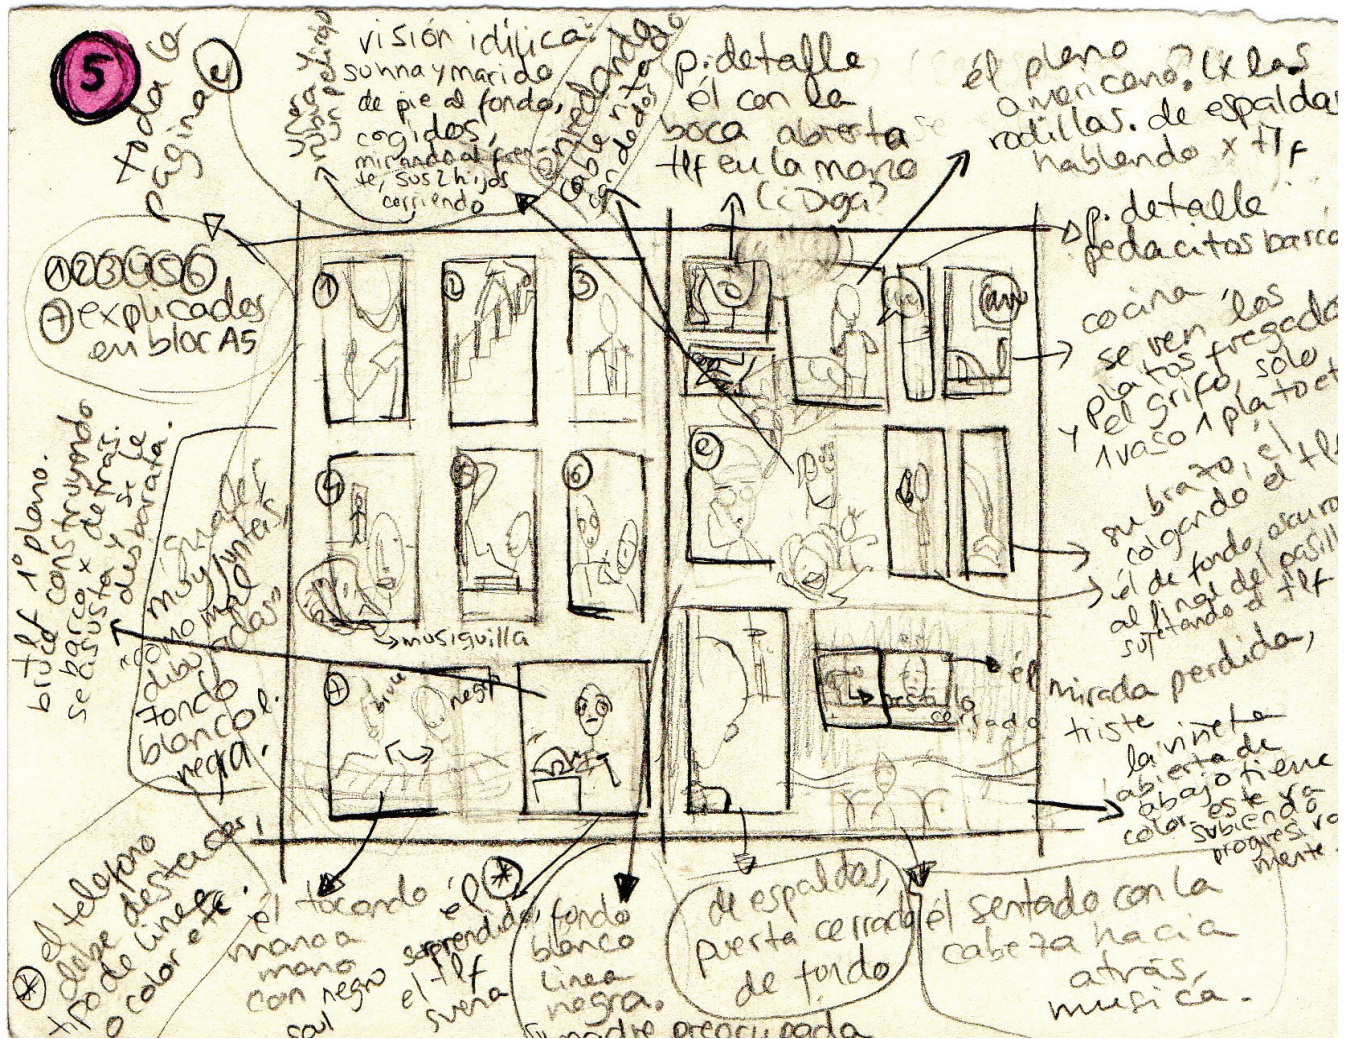 5
toda la
página
c
rubia y
visión idílica:
su hna y marido
de pie al fondo,
cogidos,
mirando al fren-
te, sus 2 hijos
corriendo
enredando
cable
con dedos
p. detalle
él con la
boca abierta
tlf en la mano
(¿Diga?
él plano
americano. (x las
rodillas. de espaldas
hablando x tlf
p. detalle
pedacitos barco
cocina,
se ven los
platos fregados
y el grifo, sólo
1 vaso 1 plato etc
su brazo, él
colgando el tlf
él de fondo, oscuro
al final del pasillo
sujetando el tlf
él
mirada perdida,
triste
la viñeta
abierta de
abajo tiene
color, este va
subiendo
progresiva
mente.
1 2 3 4 5 6
7 explicados
en bloc A5
1
2
3
4
5
6
7
e
musiquilla
negro
cerrado
brilef 1º plano.
construyendo
barco x detrás.
se asusta y se le
desbarata.
muy juntas,
"como mal
dibujadas"
fondo
blanco l.
negra.
* el telefono
debe destacar,
tipo de linea
o color etc.
él tocando
mano a
mano
con negro
soul
él *
sorprendido,
el tlf
suena
fondo
blanco
linea
negra.
su madre preocupada
de espaldas,
puerta cerrada
de fondo
él sentado con la
cabeza hacia
atrás,
musica.